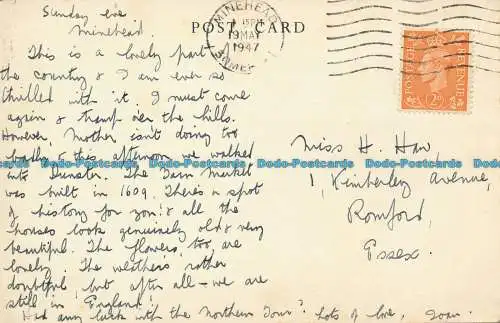 Sunday eve
Minehead.
POST CARD
MINEHEAD
15PM
19 MAY
1947
POSTAGE
REVENUE
2D
This is a lovely part of
the country & I am ever so
thrilled with it. I must come
again & tramp over the hills.
However, Mother isn't doing too
badly & this afternoon we walked
into Dunster. The Yarn Market
was built in 1609. There's a spot
of history for you! & all the
houses look genuinely old & very
beautiful. The flowers, too, are
lovely. The weather's rather
doubtful, but after all – we are
still in England!
Had any luck with the Northern Tour? Lots of love, Joan.
Miss H. Haw
1, Kimberley Avenue,
Romford,
Essex.
Dodo-Postcards.com Dodo-Postcards.com Dodo-Postcards.com Dodo-Postcards.com